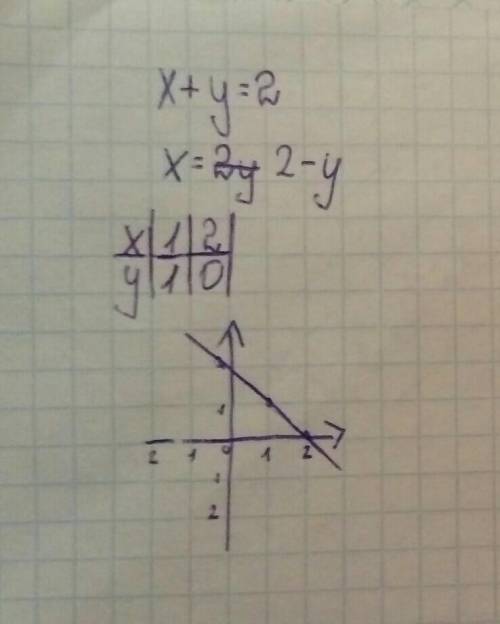 x + y = 2
x = 2y 2 - y
x | 1 | 2 |
y | 1 | 0 |
2
1
2 1 0 1 2
1
2